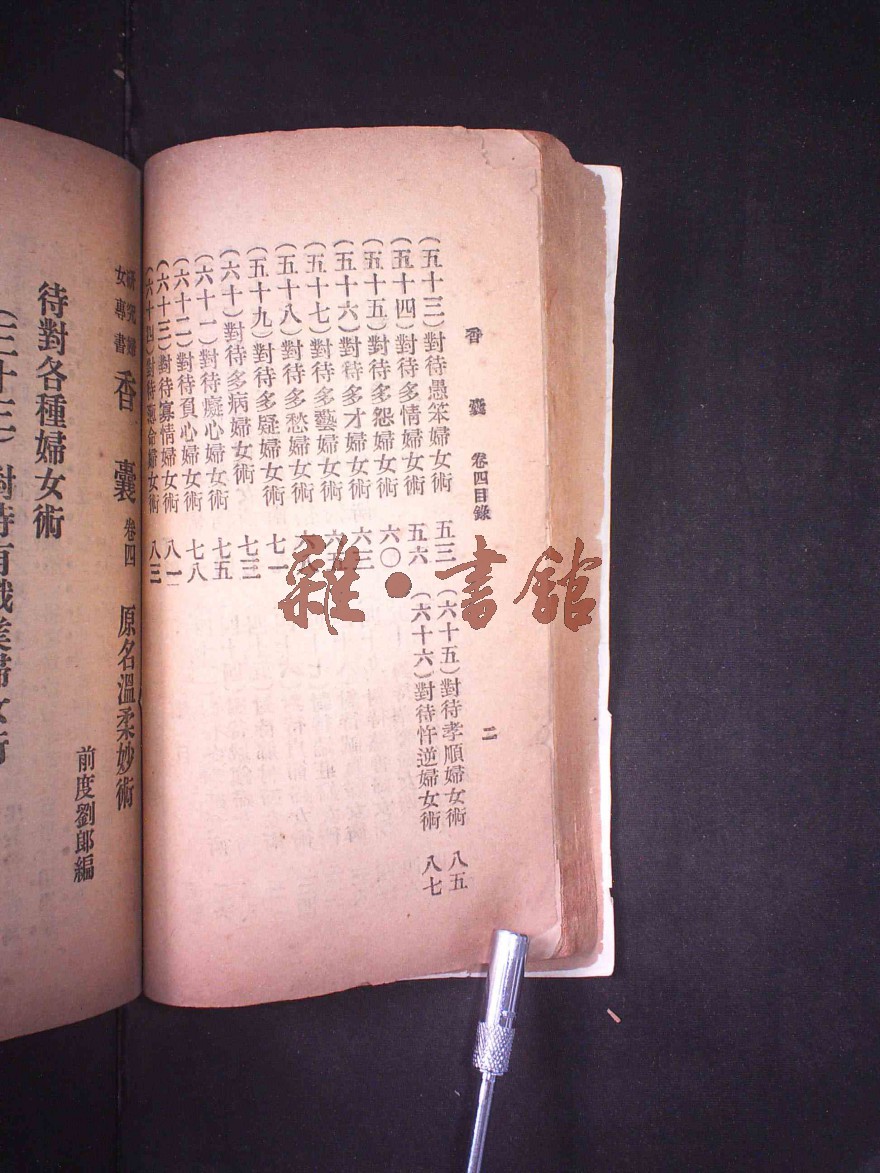 香囊 卷四目錄 二
(五十三)對待愚笨婦女術 五三
(五十四)對待多情婦女術 五六
(五十五)對待多怨婦女術 六〇
(五十六)對待多才婦女術 六三
(五十七)對待多藝婦女術
(五十八)對待多愁婦女術
(五十九)對待多疑婦女術 七一
(六十)對待多病婦女術 七三
(六十一)對待癡心婦女術 七五
(六十二)對待負心婦女術 七八
(六十三)對待寡情婦女術 八一
(六十四)對待命婦女術 八三
(六十五)對待孝順婦女術 八五
(六十六)對待忤逆婦女術 八七
研究婦
女專書 香囊 卷四 原名溫柔妙術
前度劉郎編
待對各種婦女術
(三十三)對待有職業婦女術
雜•書館